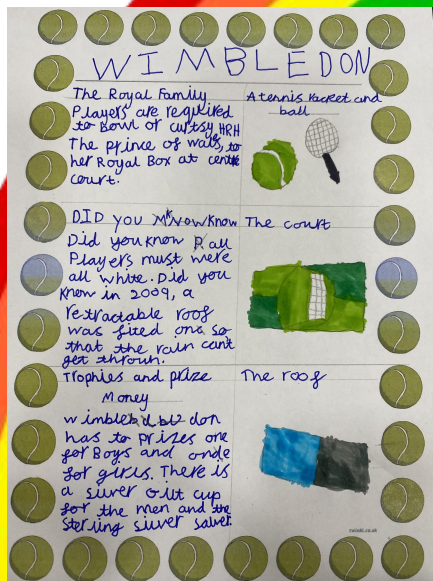 WIMBLEDON
The Royal Family
Players are required
to Bowl or curtsy HRH
The prince of wals, to
her Royal Box at centre
court.
A tennis racket and
ball
DID you know
Did you know all
Players must were
all white. Did you
know in 2009, a
retractable roof
was fited one so
that the rain can't
get throuh.
The court
Trophies and prize
Money
wimble don
has to prizes one
for Boys and onde
for girls. There is
a suver gilt cup
for the men and the
Sterling suver salver
The roof
twinkl.co.uk